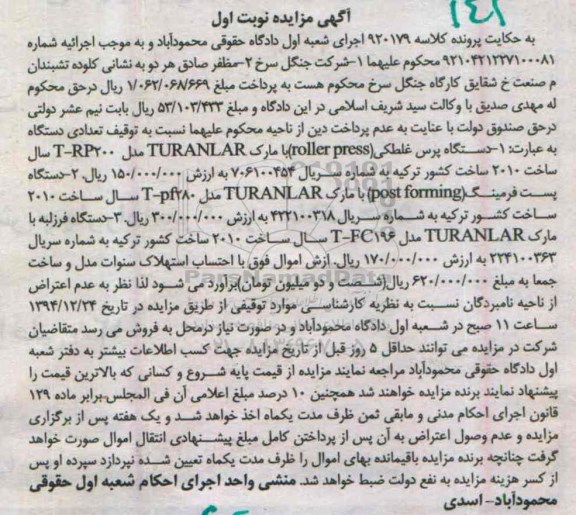 ۱۴۱
آگهی مزایده نوبت اول
به حکایت پرونده کلاسه ۹۲۰۱۷۹ اجرای شعبه اول دادگاه حقوقی محمودآباد و به موجب اجرائیه شماره
۹۲۱۰۴۲۱۲۳۷۱۰۰۰۸۱ محکوم علیهما ۱-شرکت جنگل سرخ ۲-مظفر صادق هر دو به نشانی کلوده تشبندان
م صنعت خ شقایق کارگاه جنگل سرخ محکوم هست به پرداخت مبلغ ۱/۰۶۲/۰۶۸/۶۶۹ ریال درحق محکوم
له مهدی صدیق با وکالت سید شریف اسلامی در این دادگاه و مبلغ ۵۳/۱۰۳/۴۳۳ ریال بابت نیم عشر دولتی
درحق صندوق دولت با عنایت به عدم پرداخت دین از ناحیه محکوم علیهما نسبت به توقیف تعدادی دستگاه
به عبارت: ۱-دستگاه پرس غلطکی(roller press)با مارک TURANLAR مدل T-RP۲۰۰ سال
ساخت ۲۰۱۰ ساخت کشور ترکیه به شماره سریال ۷۰۶۱۰۰۴۵۴ به ارزش ۱۵۰/۰۰۰/۰۰۰ ریال. ۲-دستگاه
پست فرمینگ(post forming) با مارک TURANLAR مدل T-pf۲۸۰ سال ساخت ۲۰۱۰
ساخت کشور ترکیه به شماره سریال ۴۲۲۱۰۰۳۱۸ به ارزش ۳۰۰/۰۰۰/۰۰۰ ریال.۳-دستگاه فرزلبه با
مارک TURANLAR مدل T-FC۱۹۶ سال ساخت ۲۰۱۰ ساخت کشور ترکیه به شماره سریال
۲۲۴۱۰۰۳۶۳ به ارزش ۱۷۰/۰۰۰/۰۰۰ ریال. ارزش اموال فوق با احتساب استهلاک سنوات مدل و ساخت
جمعا به مبلغ ۶۲۰/۰۰۰/۰۰۰ ریال(شصت و دو میلیون تومان)برآورد می شود لذا نظر به عدم اعتراض
از ناحیه نامبردگان نسبت به نظریه کارشناسی موارد توقیفی از طریق مزایده در تاریخ ۱۳۹۴/۱۲/۲۴
ساعت ۱۱ صبح در شعبه اول دادگاه محمودآباد و در صورت نیاز درمحل به فروش می رسد متقاضیان
شرکت در مزایده می توانند حداقل ۵ روز قبل از تاریخ مزایده جهت کسب اطلاعات بیشتر به دفتر شعبه
اول دادگاه حقوقی محمودآباد مراجعه نمایند مزایده از قیمت پایه شروع و کسانی که بالاترین قیمت را
پیشنهاد نمایند برنده مزایده خواهند شد همچنین ۱۰ درصد مبلغ اعلامی آن فی المجلس.برابر ماده ۱۲۹
قانون اجرای احکام مدنی و مابقی ثمن ظرف مدت یکماه اخذ خواهد شد و یک هفته پس از برگزاری
مزایده و عدم وصول اعتراض به آن پس از پرداختن کامل مبلغ پیشنهادی انتقال اموال صورت خواهد
گرفت چنانچه برنده مزایده باقیمانده بهای اموال را ظرف مدت یکماه تعیین شده نپردازد سپرده او پس
از کسر هزینه مزایده به نفع دولت ضبط خواهد شد. منشی واحد اجرای احکام شعبه اول حقوقی
محمودآباد- اسدی